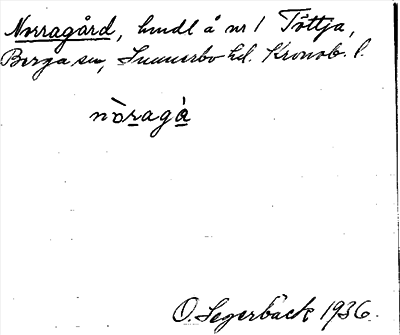 Norragård, hmdl å nr 1 Töttja,
Berga sn, Sunnerbo hd. Kronob. l.
nòragá
O. Segerbäck 1936.